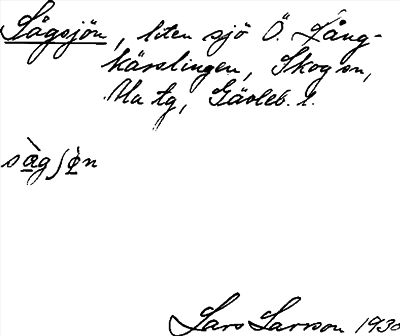 Sågsjön, liten sjö Ö. Lång-
kärslingen, Skog sn,
Ala tg, Gävleb. l.
sàgʃø̀n
Lars Larsson 1930